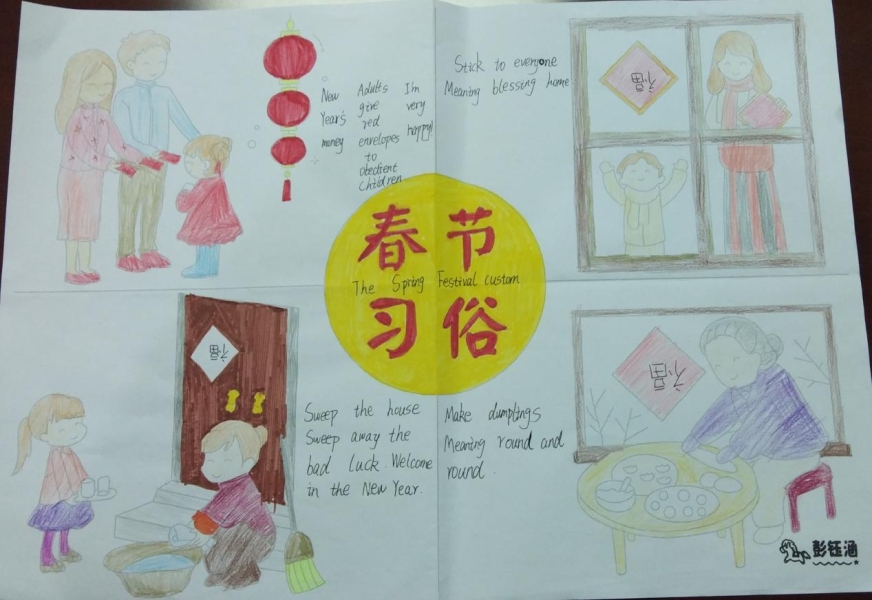 New Adults I'm
Year's give very
money red happy!
envelopes
to
obedient
children
Stick to everyone
Meaning blessing home
福
春节
The Spring Festival custom
习俗
福
Sweep the house
Sweep away the
bad luck. Welcome
in the New Year.
Make dumplings
Meaning round and
round.
福
彭钰涵